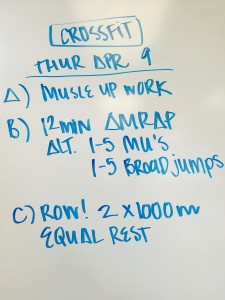 CROSSFIT
THUR APR 9
A) MUSLE UP WORK
B) 12MIN AMRAP
ALT. 1-5 MU'S
1-5 BROAD jumps
C) ROW! 2 x 1000m
EQUAL REST